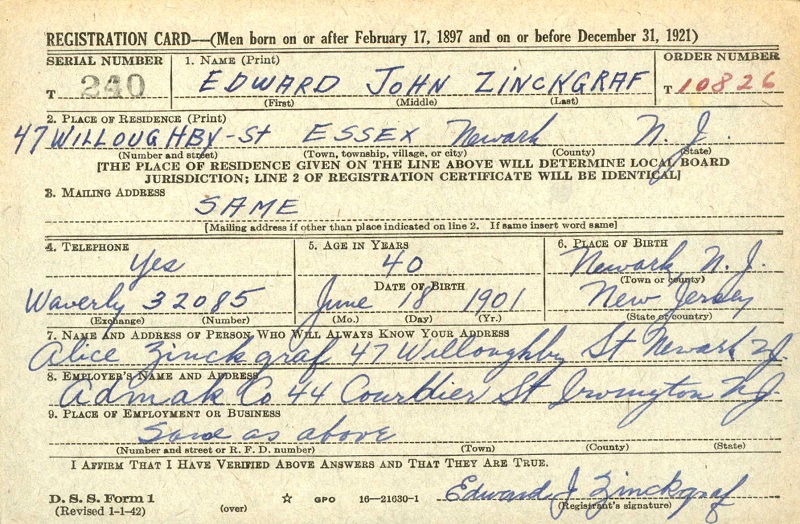 REGISTRATION CARD—(Men born on or after February 17, 1897 and on or before December 31, 1921)
SERIAL NUMBER
1. NAME (Print)
ORDER NUMBER
T 240
EDWARD JOHN ZINCKGRAF
T 10826
(First) (Middle) (Last)
2. PLACE OF RESIDENCE (Print)
47 WILLOUGHBY-St ESSEX Newark N. J.
(Number and street) (Town, township, village, or city) (County) (State)
[THE PLACE OF RESIDENCE GIVEN ON THE LINE ABOVE WILL DETERMINE LOCAL BOARD
JURISDICTION; LINE 2 OF REGISTRATION CERTIFICATE WILL BE IDENTICAL]
3. MAILING ADDRESS
SAME
[Mailing address if other than place indicated on line 2. If same insert word same]
4. TELEPHONE
5. AGE IN YEARS
6. PLACE OF BIRTH
Yes
40
Newark N. J.
DATE OF BIRTH
(Town or county)
Waverly 32085
June 18 1901
New Jersey
(Exchange) (Number)
(Mo.) (Day) (Yr.)
(State or country)
7. NAME AND ADDRESS OF PERSON WHO WILL ALWAYS KNOW YOUR ADDRESS
Alice Zinckgraf 47 Willoughby St Newark N.J.
8. EMPLOYER'S NAME AND ADDRESS
Co 44 St Irvington N.J.
9. PLACE OF EMPLOYMENT OR BUSINESS
Same as above
(Number and street or R. F. D. number) (Town) (County) (State)
I AFFIRM THAT I HAVE VERIFIED ABOVE ANSWERS AND THAT THEY ARE TRUE.
D. S. S. Form 1
(Revised 1-1-42) (over) ☆ GPO 16—21630-1
Edward J Zinckgraf
(Registrant's signature)